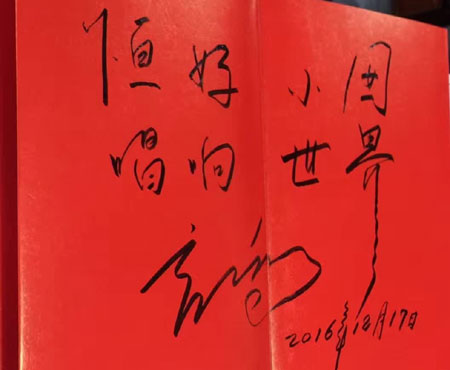 恒好小囡
唱响世界
2016年12月17日